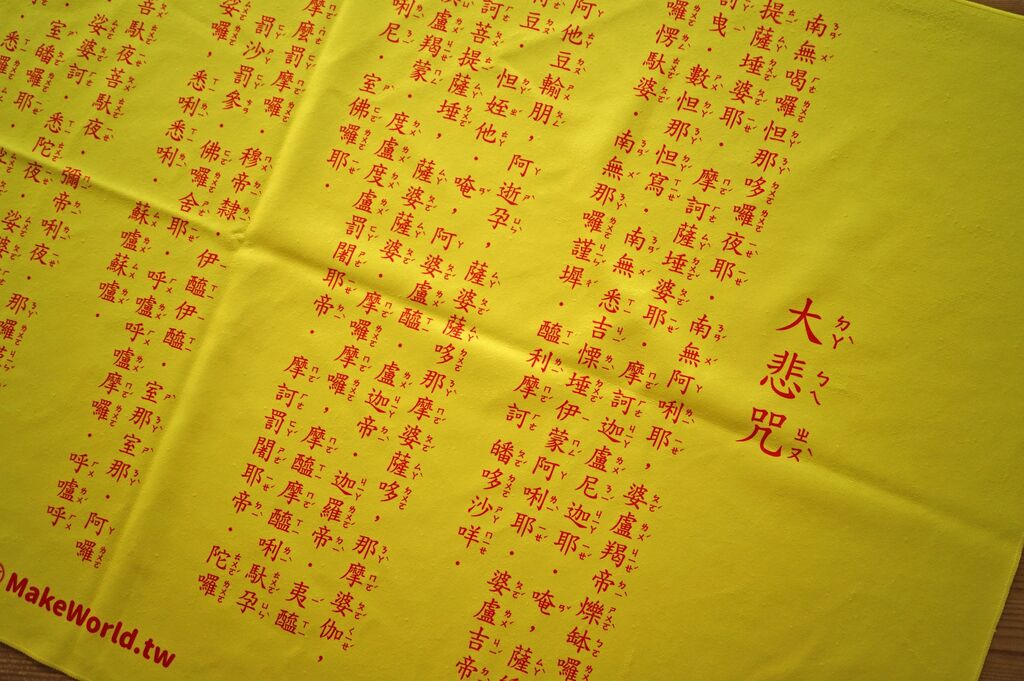 大悲咒
南無喝囉怛那哆囉夜耶．南無阿唎耶，婆盧羯帝爍缽囉
提薩埵婆耶．摩訶薩埵婆耶．摩訶迦盧尼迦耶．唵，薩
曳．數怛那怛寫．南無悉吉慄埵伊蒙阿唎耶．婆盧吉帝
囉楞馱婆．南無那囉謹墀．醯利摩訶皤哆沙咩．
阿他豆輸朋，阿逝孕，薩婆薩哆那摩婆薩哆，那摩婆伽，
豆．怛姪他．唵，阿婆盧醯．盧迦帝．迦羅帝．夷醯
訶菩提薩埵．薩婆薩婆．摩囉摩囉，摩醯摩醯唎馱孕
盧羯蒙．度盧度盧罰闍耶帝．摩訶罰闍耶帝．陀囉
唎尼．室佛囉耶．
摩摩罰摩囉．穆帝隸．伊醯伊醯．室那室那．阿囉
罰沙罰參．佛囉舍耶．呼嚧呼嚧摩囉．呼嚧呼
娑囉，悉唎悉唎．蘇嚧蘇嚧．
菩馱夜菩馱夜．彌帝唎夜．那囉
娑婆訶．悉陀夜．娑婆
室皤囉耶
MakeWorld.tw